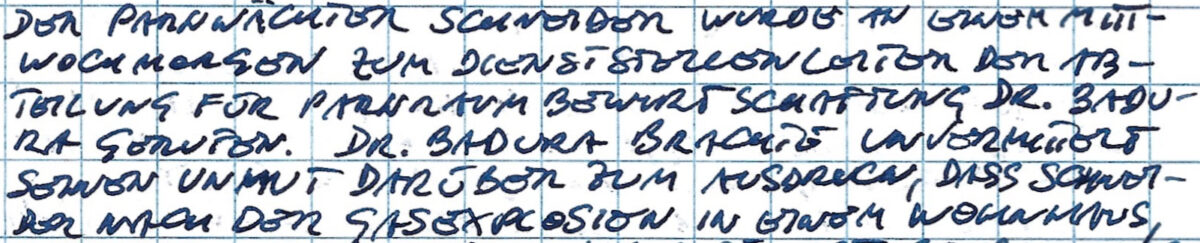 DER PARKWÄCHTER SCHNEIDER WURDE AN EINEM MITT-
WOCHMORGEN ZUM DIENSTSTELLENLEITER DER AB-
TEILUNG FÜR PARKRAUMBEWIRTSCHAFTUNG DR. BADU-
RA GERUFEN. DR. BADURA BRACHTE UNVERMITTELT
SEINEN UNMUT DARÜBER ZUM AUSDRUCK, DASS SCHNEI-
DER NACH DER GASEXPLOSION IN EINEM WOHNHAUS,